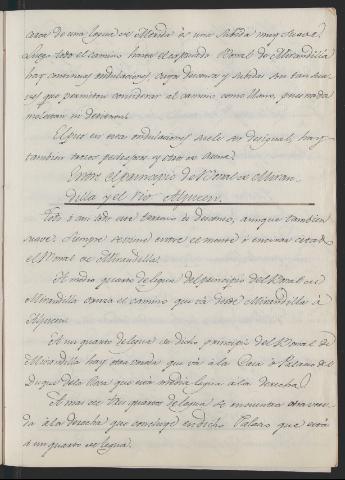 cerca de una legua de Merida es una subida muy suave.
Luego todo el camino hasta el espresado Roval de Mirandilla
hay continuas ondulaciones, cuyas bajadas y subidas son tan sua-
ves que permiten considerar al camino como llano, pues nada
molestan ni detienen.
El piso en estas ondulaciones suele ser desigual, hay
tambien trozos pedregosos y otros de arena.
Entre el principio del Roval de Miran
dilla y el Rio Aljucen.
Todo ó casi todo este terreno es descenso, aunque tambien
suave. Siempre se va entre el monte ó encinar citado
el Roval de Mirandilla.
A medio cuarto de legua del principio del Roval de
Mirandilla cruza el camino que va desde Mirandilla á
Aljucen.
A un cuarto de legua de dicho principio del Roval de
Mirandilla hay otra vereda que va á la Casa ó Palacio del
Duque de la Roca que está media legua á la derecha.
A mas de tres cuartos de legua se encuentra otra vere-
da á la derecha que concluye en dicho Palacio que está
á un cuarto de legua.